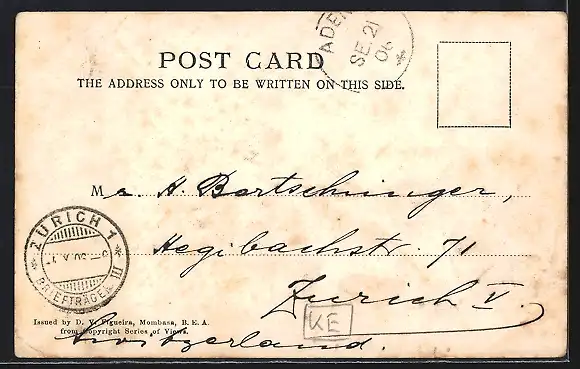 ADEN
SE 21
06
POST CARD
THE ADDRESS ONLY TO BE WRITTEN ON THIS SIDE.
Mr. A. Bertschinger,
ZURICH 1
BRIEFTRÄGER III
Hegibachstr. 71
Zurich V.
KE
Issued by D. V. Figueira, Mombasa, B. E. A.
from Copyright Series of Views.
Switzerland.